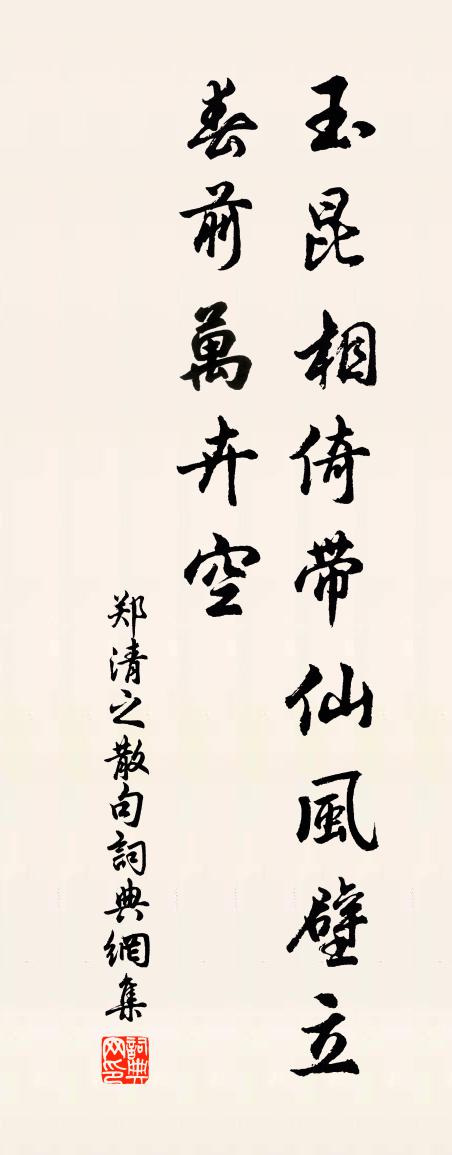 玉昆相倚帶仙風壁立
春前萬卉空
郑清之散句詞典網集
詞典网印